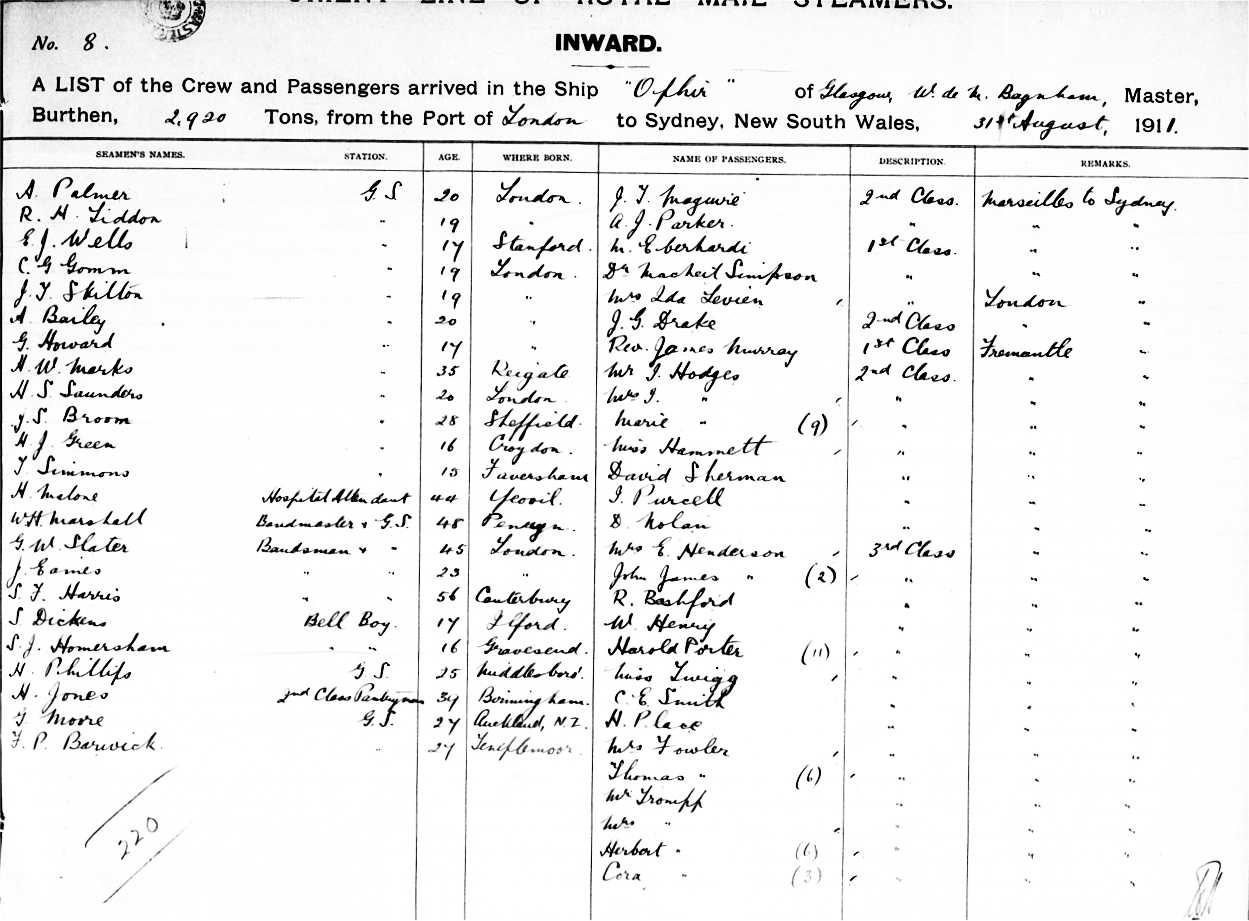 ORIENT LINE OF ROYAL MAIL STEAMERS.
No. 8.
INWARD.
A LIST of the Crew and Passengers arrived in the Ship "Ophir" of Glasgow, W. de M. Baynham, Master,
Burthen, 2,920 Tons, from the Port of London to Sydney, New South Wales, 31st August, 1911.
SEAMEN'S NAMES. STATION. AGE. WHERE BORN. NAME OF PASSENGERS. DESCRIPTION. REMARKS.
A. Palmer G.S 20 London. J. T. Maguire 2nd Class. Marseilles to Sydney.
R. H. Liddon " 19 " A. J. Parker. " " "
E. J. Wells " 17 Stanford. M. Eberhardi 1st Class. " "
C. G Gomm " 19 London. Dr Macheil Simpson " " "
J. T. Skilton " 19 " Mrs Ida Levien " London "
A. Bailey " 20 " J. G. Drake 2nd Class " "
G. Howard " 17 " Rev. James Murray 1st Class Fremantle "
H. W. Marks " 35 Reigate Mr I. Hodges 2nd Class. " "
H. S. Saunders " 20 London. Mrs I. " " " "
J. S. Broom " 28 Sheffield. Marie " (9) " " "
H. J. Green " 16 Croydon. Miss Hammett " " "
T. Simmons " 15 Faversham David Sherman " " "
H. Malone Hospital Attendant 44 Yeovil. I. Purcell " " "
W. H. Marshall Bandmaster & G.S. 48 Penryn. D. Nolan " " "
G. W. Slater Bandsman & " 45 London. Mrs E. Henderson 3rd Class " "
J. Eames " " 23 " John James " (2) " " "
S. T. Harris " " 56 Canterbury R. Bashford " " "
S Dickens Bell Boy. 17 Ilford. W. Henry " " "
S. J. Homersham " " 16 Gravesend. Harold Porter (11) " " "
H. Phillips G S. 25 Middlesboro'. Miss Twigg " " "
H. Jones 2nd Class Pantryman 39 Birmingham. C. E. Smith " " "
G Moore G.S. 27 Auckland, N.Z. H. Place " " "
F. P. Barwick " 27 Templemoor. Mrs Fowler " " "
Thomas " (6) " " "
Mr Trompp " " "
Mrs " " " "
Herbert " (6) " " "
Cora " (3) " " "
220